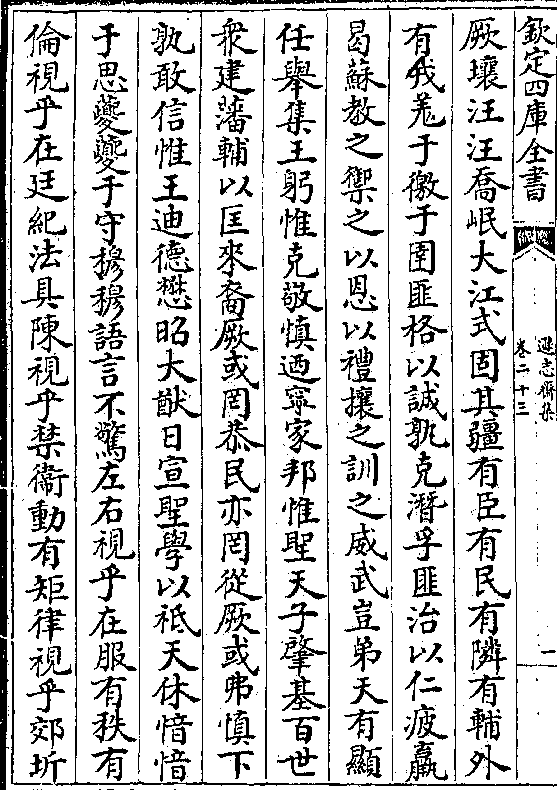 欽定四庫全書
遜志齋集
卷二十三
一
厥壤汪汪喬岷大江式固其疆有臣有民有隣有輔外
有戎羗于徼于圉匪格以誠孰克潛孚匪治以仁疲羸
曷蘇教之禦之以恩以禮攘之訓之威武豈弟天有顯
任舉集王躬惟克敬慎迺寧家邦惟聖天子肇基百世
衆建藩輔以匡來裔厥或罔恭民亦罔從厥或弗慎下
孰敢信惟王迪德懋昭大猷日宣聖學以祗天休愔愔
于思夔夔于守穆穆語言不驚左右視乎在服有秩有
倫視乎在廷紀法具陳視乎禁衞動有矩律視乎郊圻